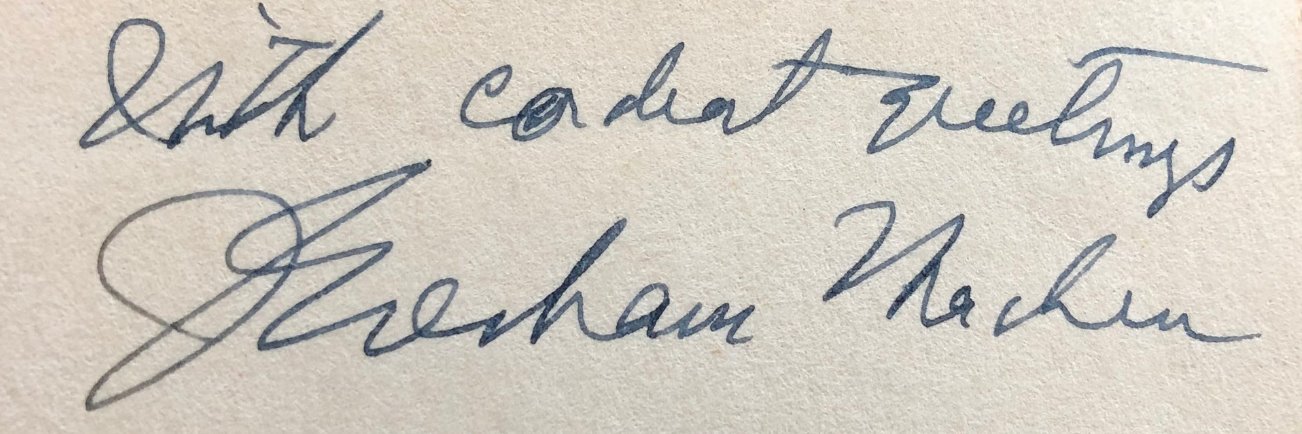 With cordial greetings
J Gresham Machen